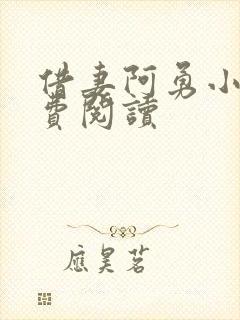 借妻阿勇小
費閱讀
應昊茗